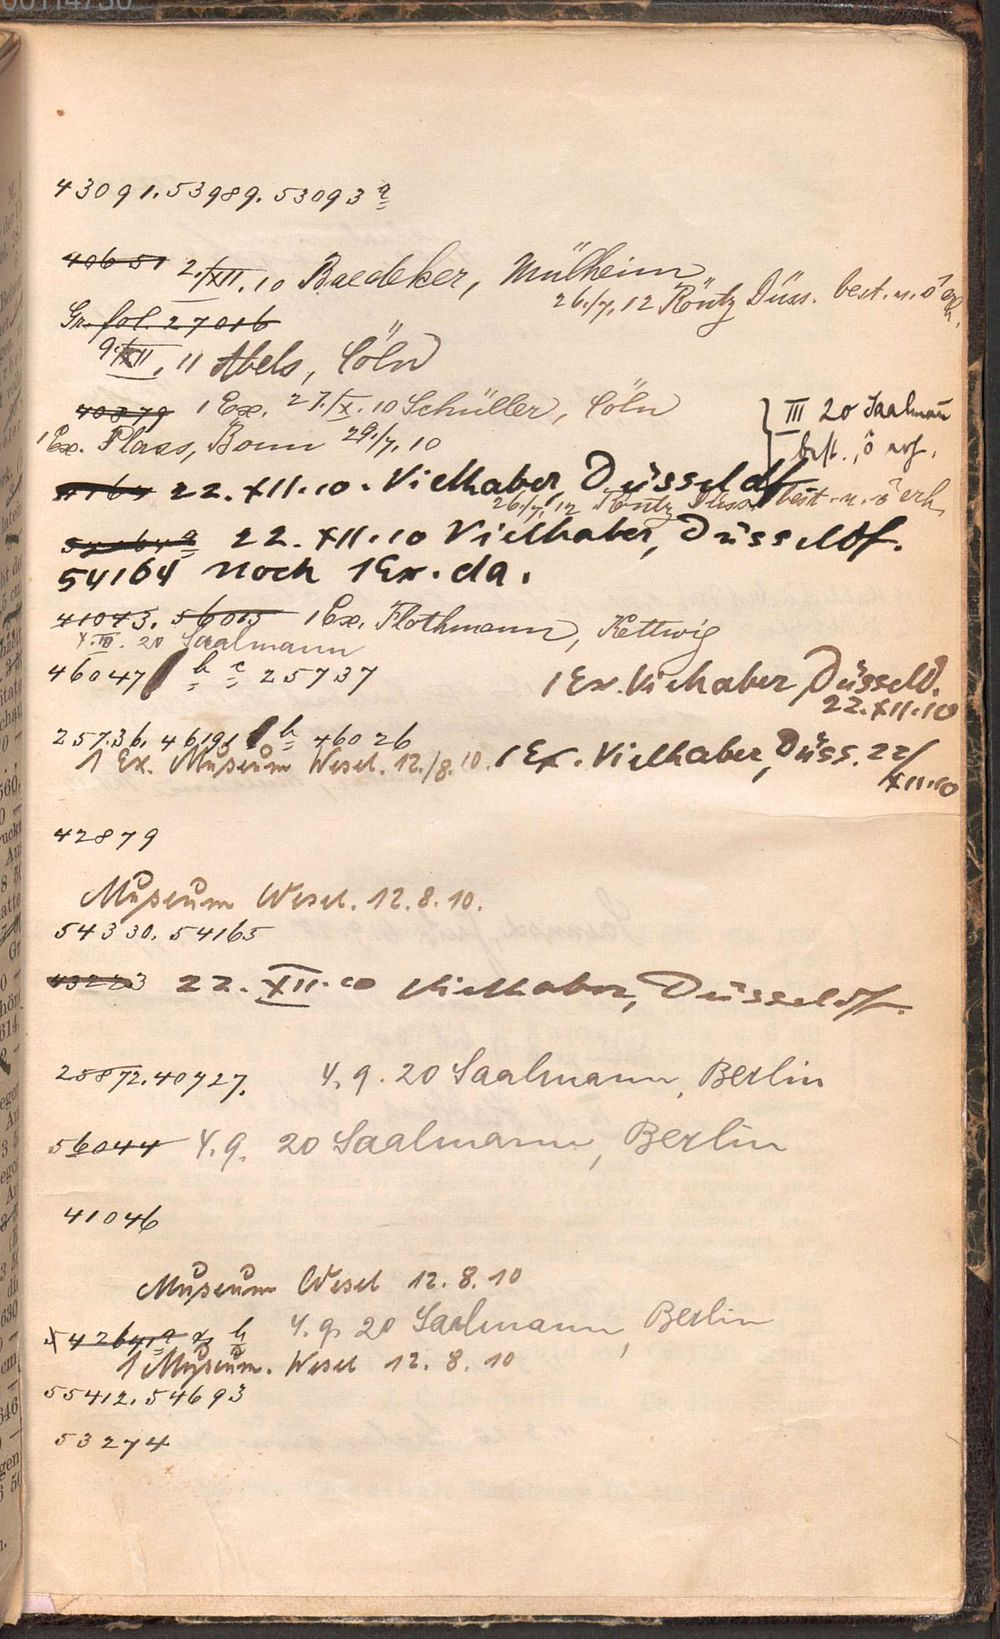 43091. 53989. 53093 a
40651 2./XII. 10 Baedeker, Mülheim
26./7. 12 Röntz Düss. best. n. ö erh.
Gr. fol. 27016
9./XII. 11 Abels, Cöln
40379 1 Ex. 27./X. 10 Schüller, Cöln
III 20 Saalmann
1 Ex. Plaas, Bonn 29./7. 10
best. ö
22. XII. 10. Vielhaber Düsseldf.
26./7. 12 Röntz Düss. best. n. ö erh.
22. XII. 10 Vielhaber, Düsseldf.
54164 noch 1 Ex. da.
41043. 56015 1 Ex. Flothmann, Kettwig
20 Saalmann
46047 b c 25737
1 Ex. Vielhaber, Düsseld.
22. XII. 10
25736. 46191 b 46026
1 Ex. Museum Wesel. 12./8. 10. 1 Ex. Vielhaber, Düss. 22/
XII. 10
42879
Museum Wesel. 12. 8. 10.
54330. 54165
43223 22. XII. 10 Vielhaber, Düsseldf.
25872. 40727. 4. 9. 20 Saalmann, Berlin
56044 4. 9. 20 Saalmann, Berlin
41046
Museum Wesel 12. 8. 10
4. 9. 20 Saalmann, Berlin
1 Museum. Wesel 12. 8. 10
55412. 54693
53274